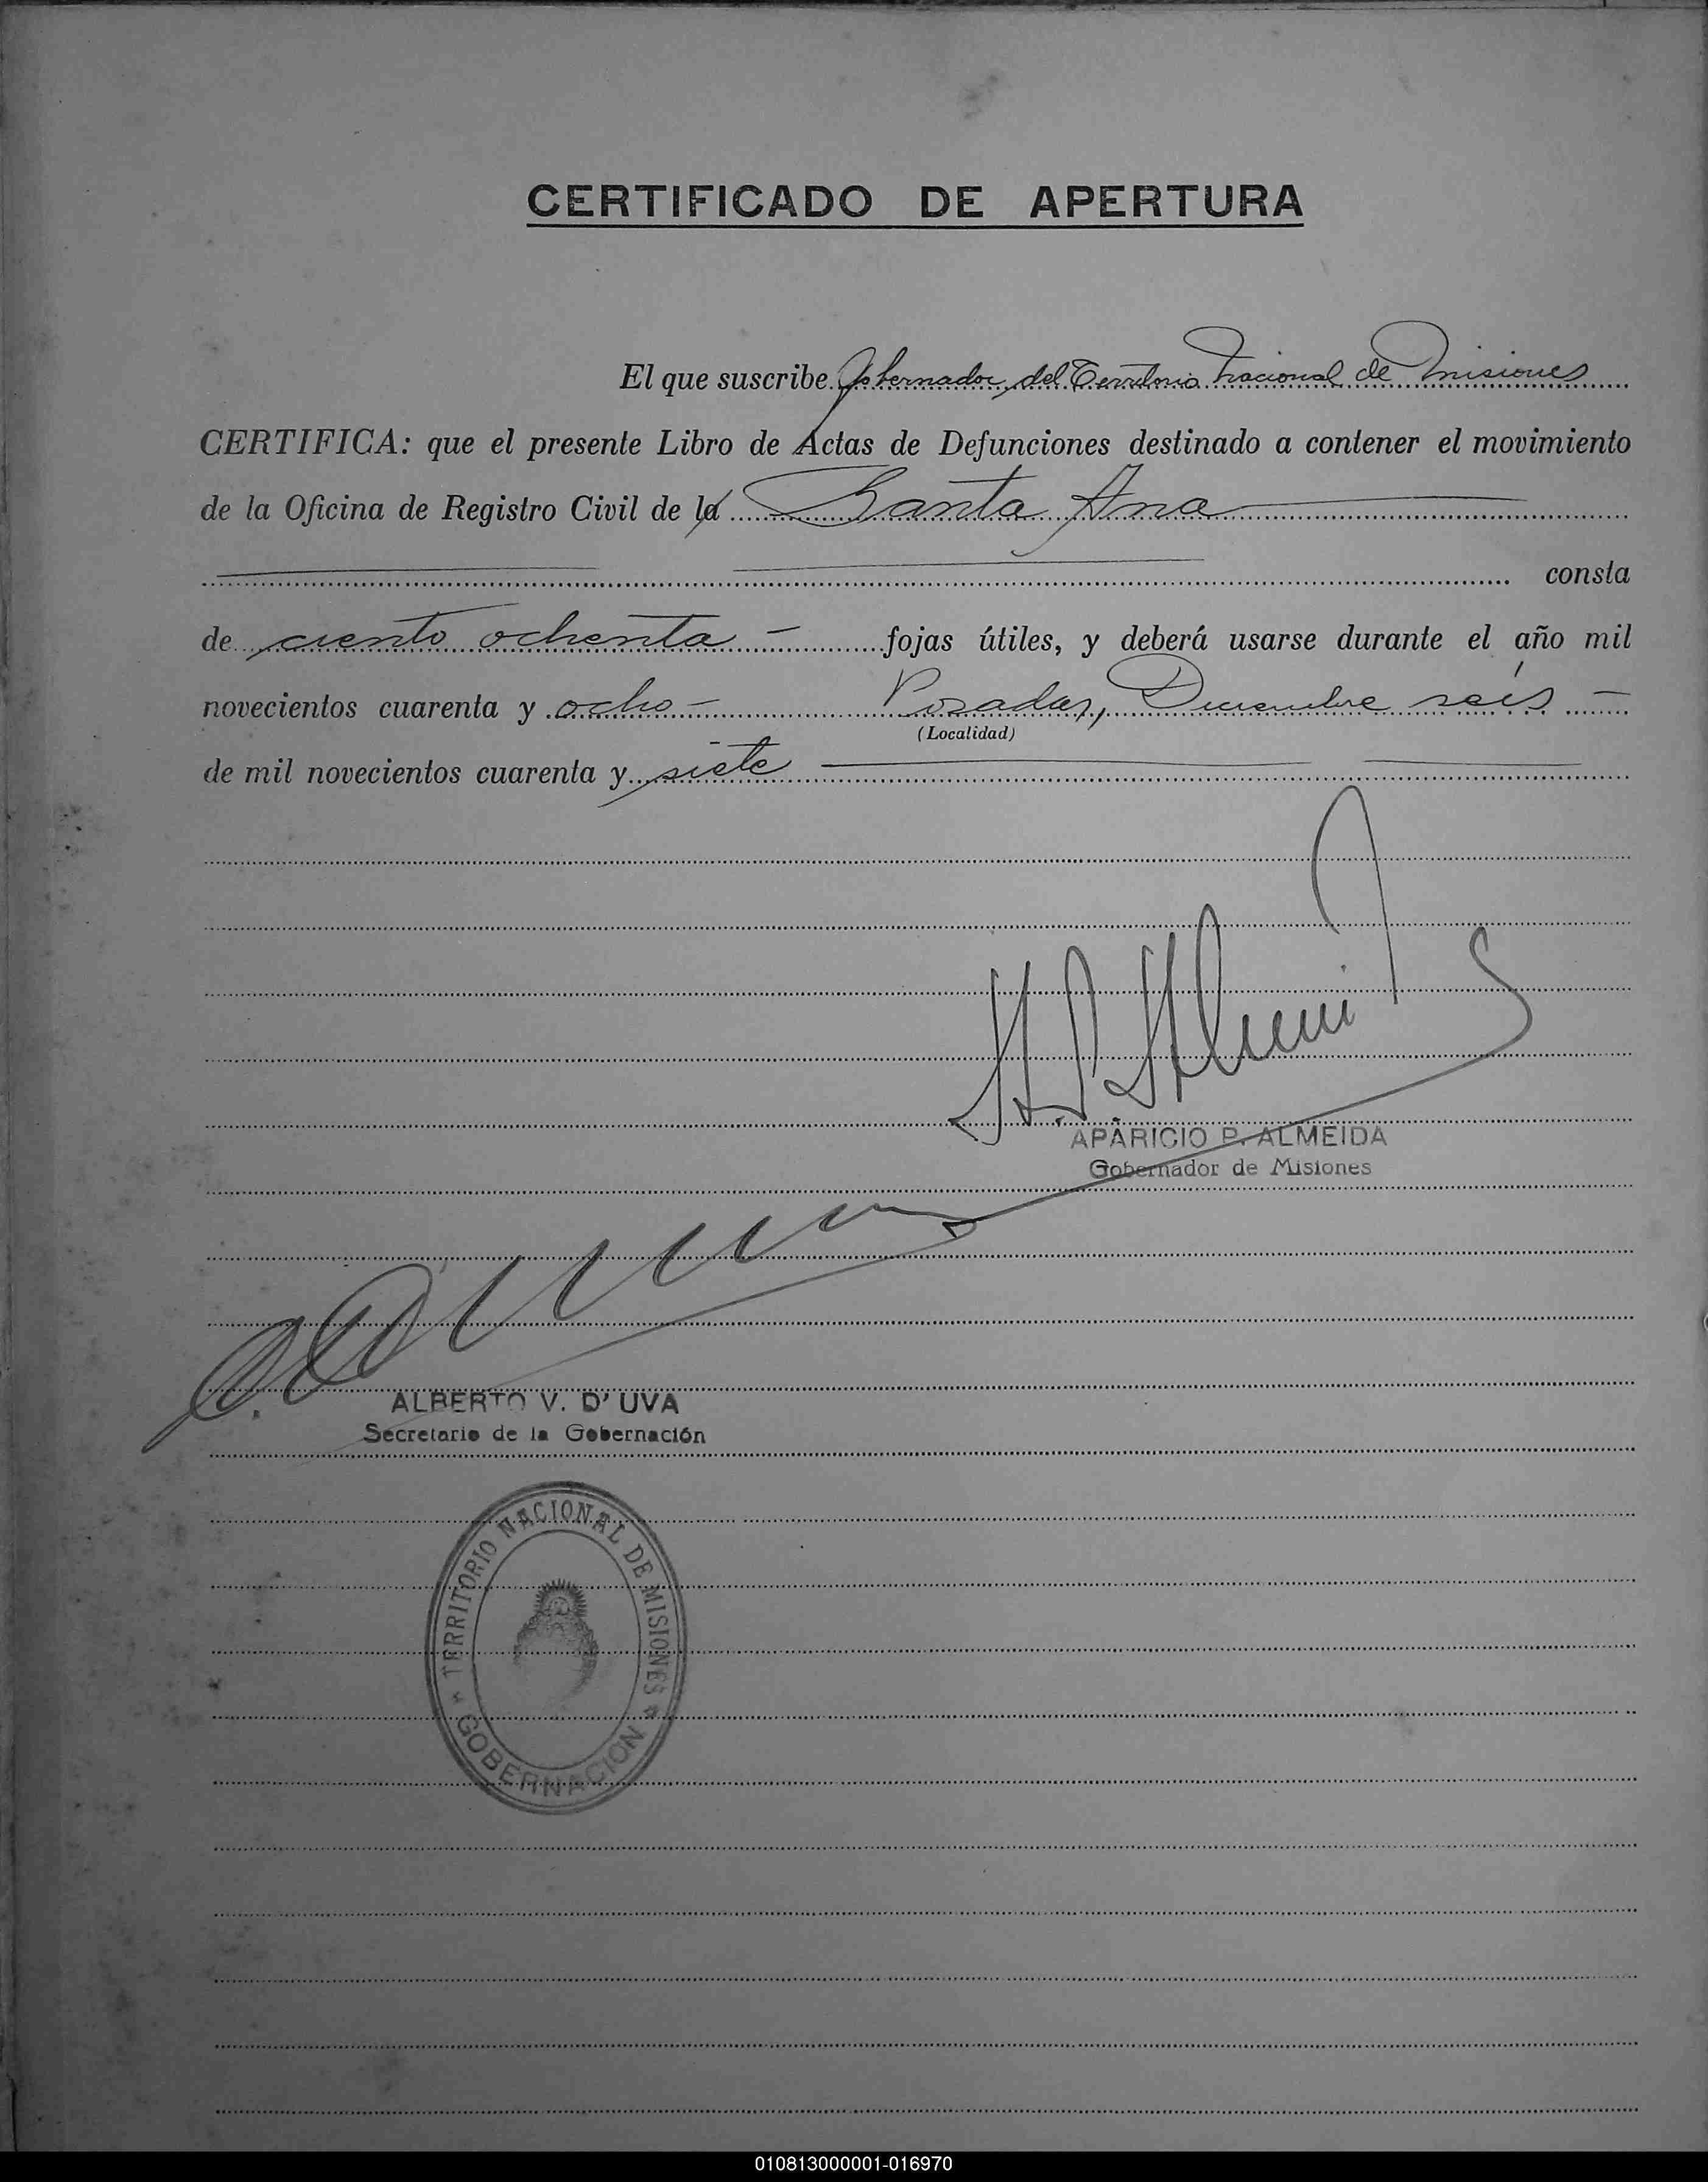 CERTIFICADO DE APERTURA
El que suscribe Gobernador del Territorio Nacional de Misiones
CERTIFICA: que el presente Libro de Actas de Defunciones destinado a contener el movimiento
de la Oficina de Registro Civil de la Santa Ana
consta
de ciento ochenta - fojas útiles, y deberá usarse durante el año mil
novecientos cuarenta y ocho - Posadas, Diciembre seis -
(Localidad)
de mil novecientos cuarenta y siete
APARICIO P. ALMEIDA
Gobernador de Misiones
ALBERTO V. D'UVA
Secretario de la Gobernación
TERRITORIO NACIONAL DE MISIONES
GOBERNACION
010813000001-016970